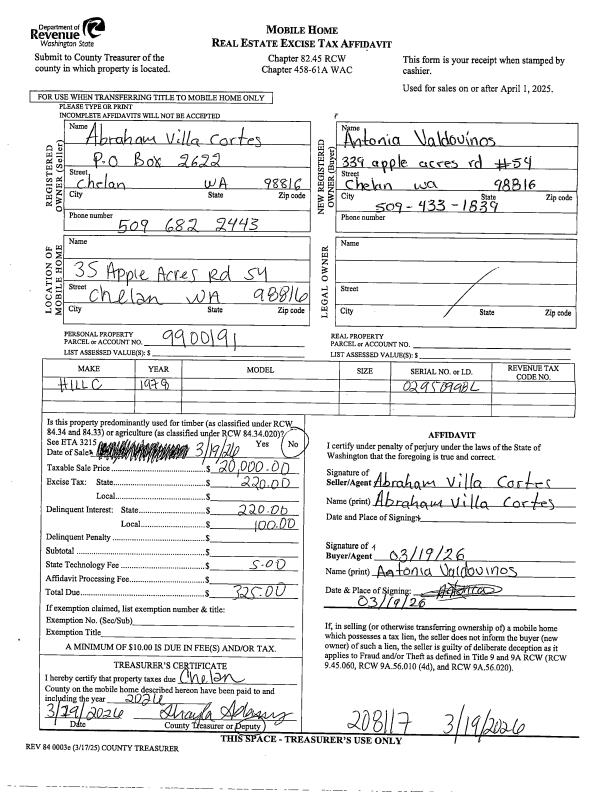 Department of
Revenue
Washington State
Submit to County Treasurer of the
county in which property is located.
MOBILE HOME
REAL ESTATE EXCISE TAX AFFIDAVIT
Chapter 82.45 RCW
Chapter 458-61A WAC
This form is your receipt when stamped by
cashier.
Used for sales on or after April 1, 2025.
FOR USE WHEN TRANSFERRING TITLE TO MOBILE HOME ONLY
PLEASE TYPE OR PRINT
INCOMPLETE AFFIDAVITS WILL NOT BE ACCEPTED
REGISTERED
OWNER (Seller)
Name Abraham Villa Cortes
P.O Box 2622
Street
Chelan WA 98816
City State Zip code
Phone number
509 682 2443
NEW REGISTERED
OWNER (Buyer)
Name Antonia Valdovinos
339 apple acres rd #54
Street
Chelan wa 98816
City State Zip code
509-433-1839
Phone number
LOCATION OF
MOBILE HOME
Name
35 Apple Acres Rd 54
Street
Chelan WA 98816
City State Zip code
LEGAL OWNER
Name
Street
City State Zip code
PERSONAL PROPERTY
PARCEL or ACCOUNT NO. 9900191
LIST ASSESSED VALUE(S): $
REAL PROPERTY
PARCEL or ACCOUNT NO.
LIST ASSESSED VALUE(S): $
MAKE YEAR MODEL SIZE SERIAL NO. or I.D. REVENUE TAX
CODE NO.
HILLC 1978 02950998L
Is this property predominantly used for timber (as classified under RCW
84.34 and 84.33) or agriculture (as classified under RCW 84.34.020)?
See ETA 3215 Yes No
Date of Sale 3/19/26
Taxable Sale Price $ 20,000.00
Excise Tax: State $ 220.00
Local $
Delinquent Interest: State $ 220.00
Local $ 100.00
Delinquent Penalty $
Subtotal $
State Technology Fee $ 5.00
Affidavit Processing Fee $
Total Due $ 325.00
If exemption claimed, list exemption number & title:
Exemption No. (Sec/Sub)
Exemption Title
A MINIMUM OF $10.00 IS DUE IN FEE(S) AND/OR TAX.
TREASURER'S CERTIFICATE
I hereby certify that property taxes due Chelan
County on the mobile home described hereon have been paid to and
including the year 2026
3/19/2026
Date County Treasurer or Deputy
AFFIDAVIT
I certify under penalty of perjury under the laws of the State of
Washington that the foregoing is true and correct.
Signature of
Seller/Agent Abraham Villa Cortes
Name (print) Abraham Villa Cortes
Date and Place of Signing:
Signature of
Buyer/Agent 03/19/26
Name (print) Antonia Valdovinos
Date & Place of Signing:
03/19/26
If, in selling (or otherwise transferring ownership of) a mobile home
which possesses a tax lien, the seller does not inform the buyer (new
owner) of such a lien, the seller is guilty of deliberate deception as it
applies to Fraud and/or Theft as defined in Title 9 and 9A RCW (RCW
9.45.060, RCW 9A.56.010 (4d), and RCW 9A.56.020).
208117 3/19/2026
THIS SPACE - TREASURER'S USE ONLY
REV 84 0003e (3/17/25) COUNTY TREASURER